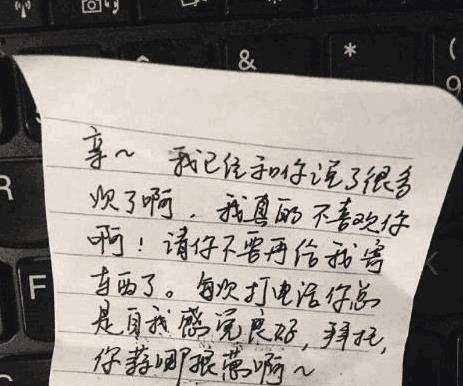 &
*
(
9
R
F
K
亲~ 我已经和你说了很多
次了啊，我真的不喜欢你
啊！请你不要再给我寄
东西了。每次打电话你总
是自我感觉良好，拜托，
你算哪根葱啊~